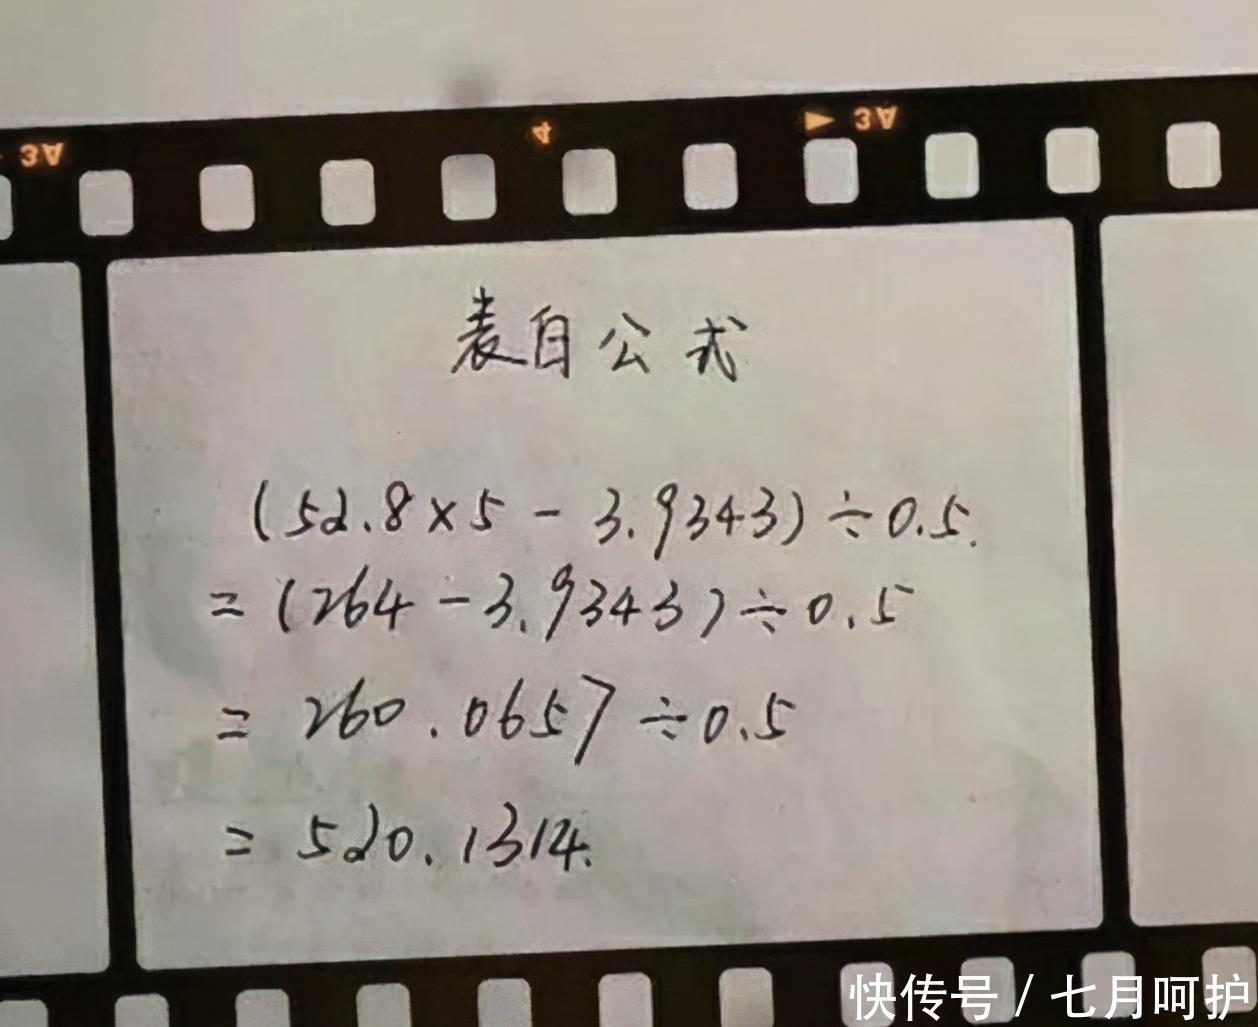 3A
4
3A
表白公式
(52.8×5-3.9343)÷0.5.
=(264-3.9343)÷0.5
=260.0657÷0.5
=520.1314.
快传号/七月呵护